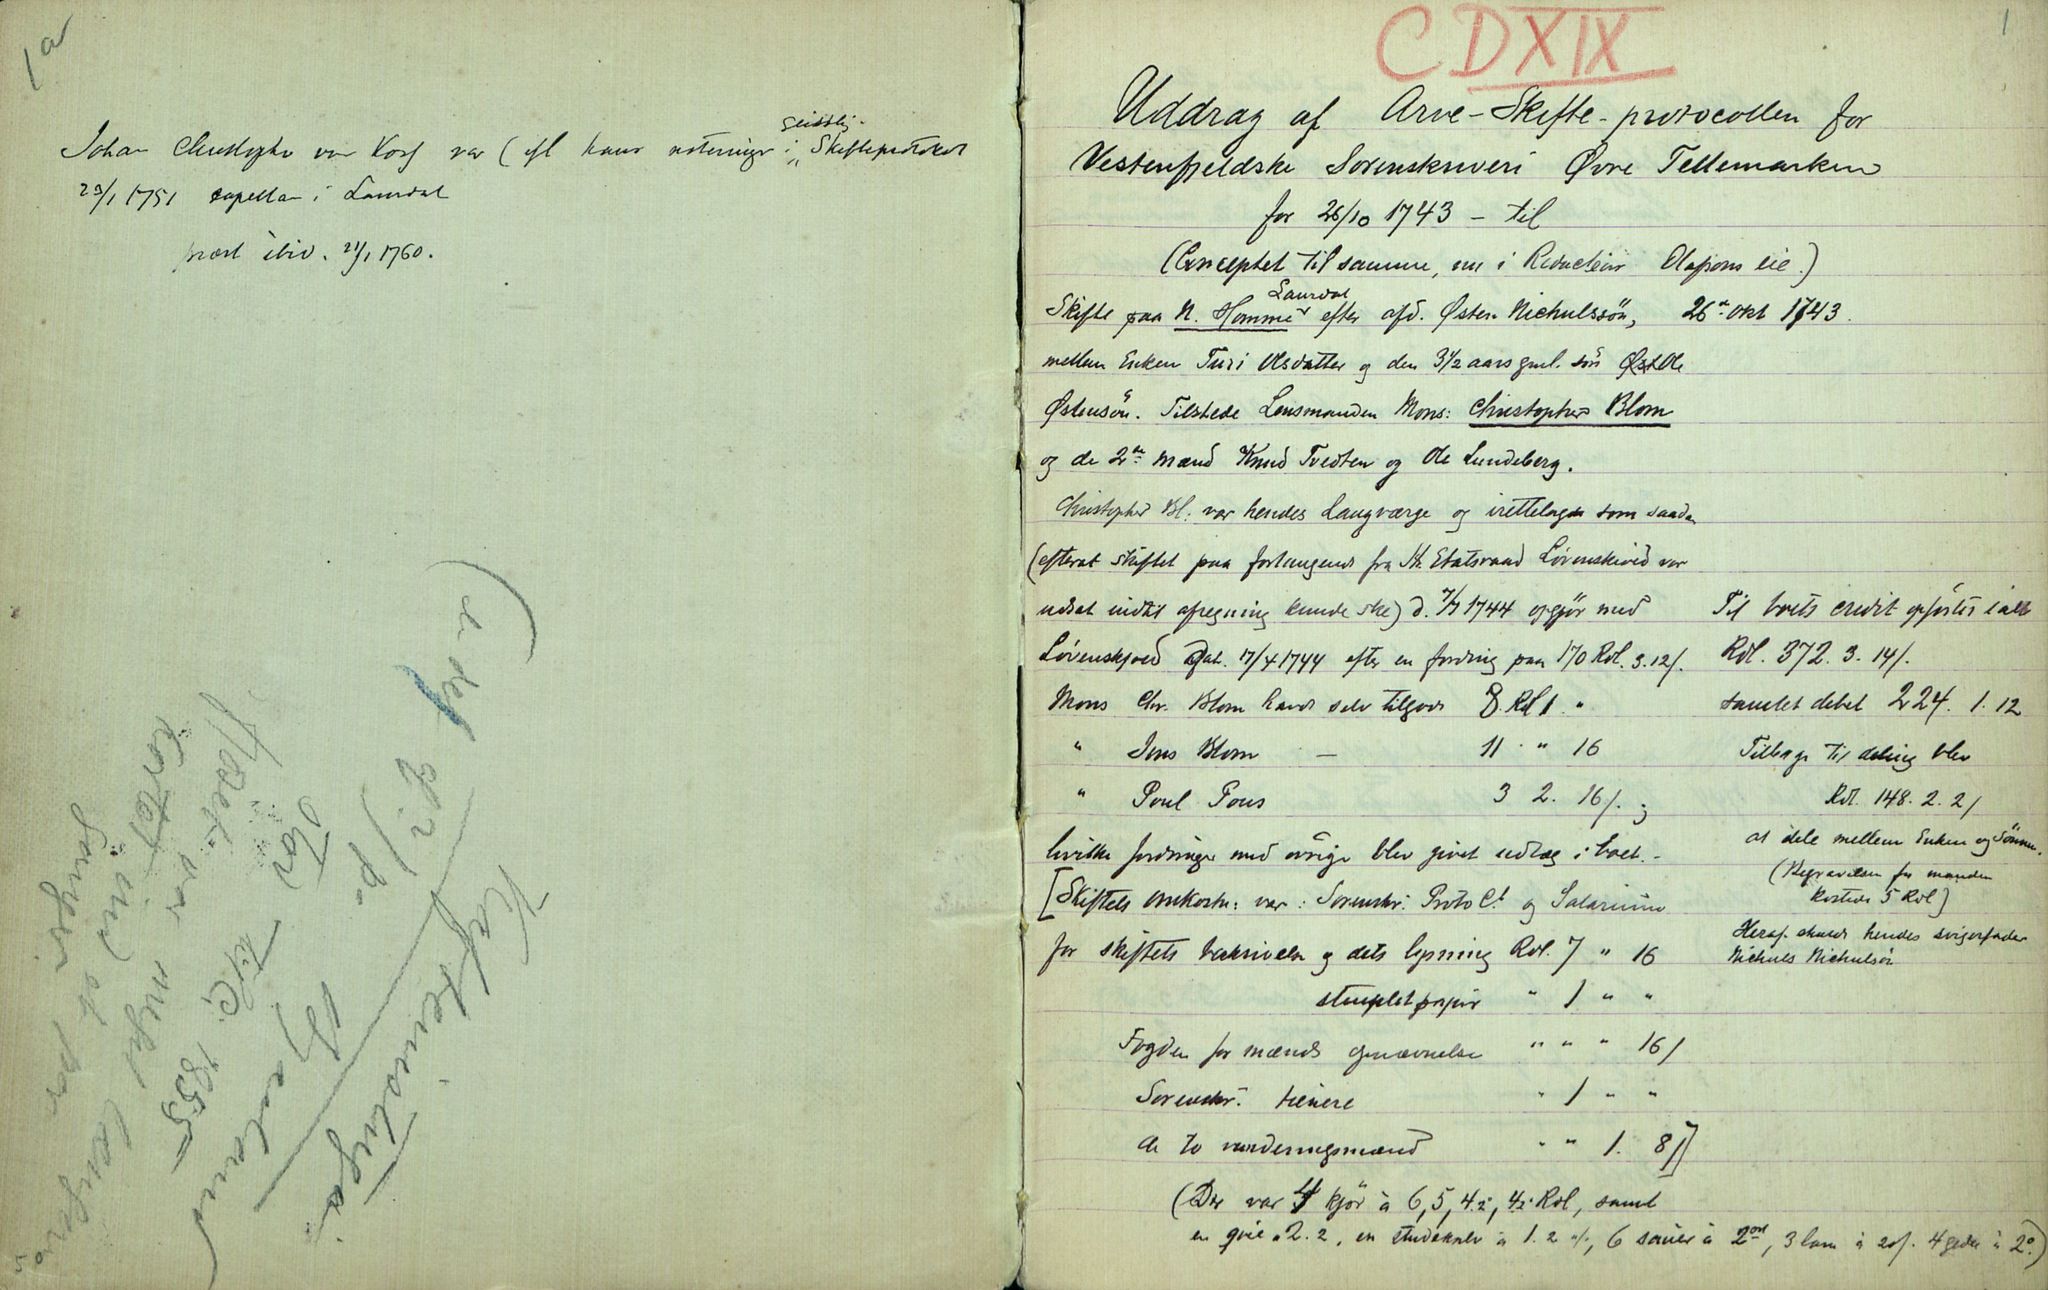 1a
Johan Christopher von Korf var (efl hans noteringer i geistlig Skifteprotokol
23/1 1751 capellan i Laurdal
præst ibid. 21/1 1760.
50
CDXIX
1
Uddrag af Arve-Skifte-protocollen for
Vestenfjeldske Sorenskriveri Øvre Tellemarken
for 26/10 1743 – til
(Conceptet til samme, nu i Redacteur Olafsens eie.)
Skifte paa N. Homme Laurdal efter afd. Østen Nichulssön, 26de Okt 1743.
mellem Enken Turi Olsdatter og den 3 1/2 aars gml. sön Ole
Østensön. Tilstede Lensmanden Mons: Christopher Blom
og de 2de mænd Knud Tvedten og Ole Lundeberg.
Christopher Bl: var hendes Laugværge og irettelagde som saadan
(efterat skiftet paa forlangende fra Hr. Etatsraad Løvenskiold var
udsat indtil afregning kunde ske) d. 7/7 1744 opgjör med
Løvenskiold dat. 17/4 1744 efter en fordring paa 170 Rdl. 3. 12/.
Mons Chr. Blom havde selv tilgode 8. Rdl 1. "
" Jens Blom — 11 " 16
" Poul Pous 3 2. 16/. ;
hvilke fordringer med övrige blev givet udlæg i boet. -
[Skiftets omkostn: var: Sorenskr: Proto Ct og Salarium
for skiftets beskrivelse og dets lysning Rdl. 7 " 16
stemplet papir " 1 " "
Fogden for mænds opnævnelse " " " 16/
Sorenskr: tienere " 1 " "
de to vurderingsmænd " " 1. 8/]
(Der var 4 kjör à 6, 5, 4.2, 4.2. Rdl, samt
en qvie à 2. 2, en studekalv à 1. 2 /., 6 sauer à 2 ort, 3 lam à 20/. 4 geder à 2 o.)
Til boets credit opförtes ialt
Rdl. 372. 3. 14/.
samlet debet 224. 1. 12
Tilbage til deling blev
Rdl. 148. 2. 2/
at dele mellem Enken og Sönnen.
(Begravelsen for manden
kostede 5 Rdl)
Heraf skulde hendes svigerfader
Nichuls Nichulsön
(
Kleftenestugo.
Bjelland
til C. 1855
Hosets
var meget længere